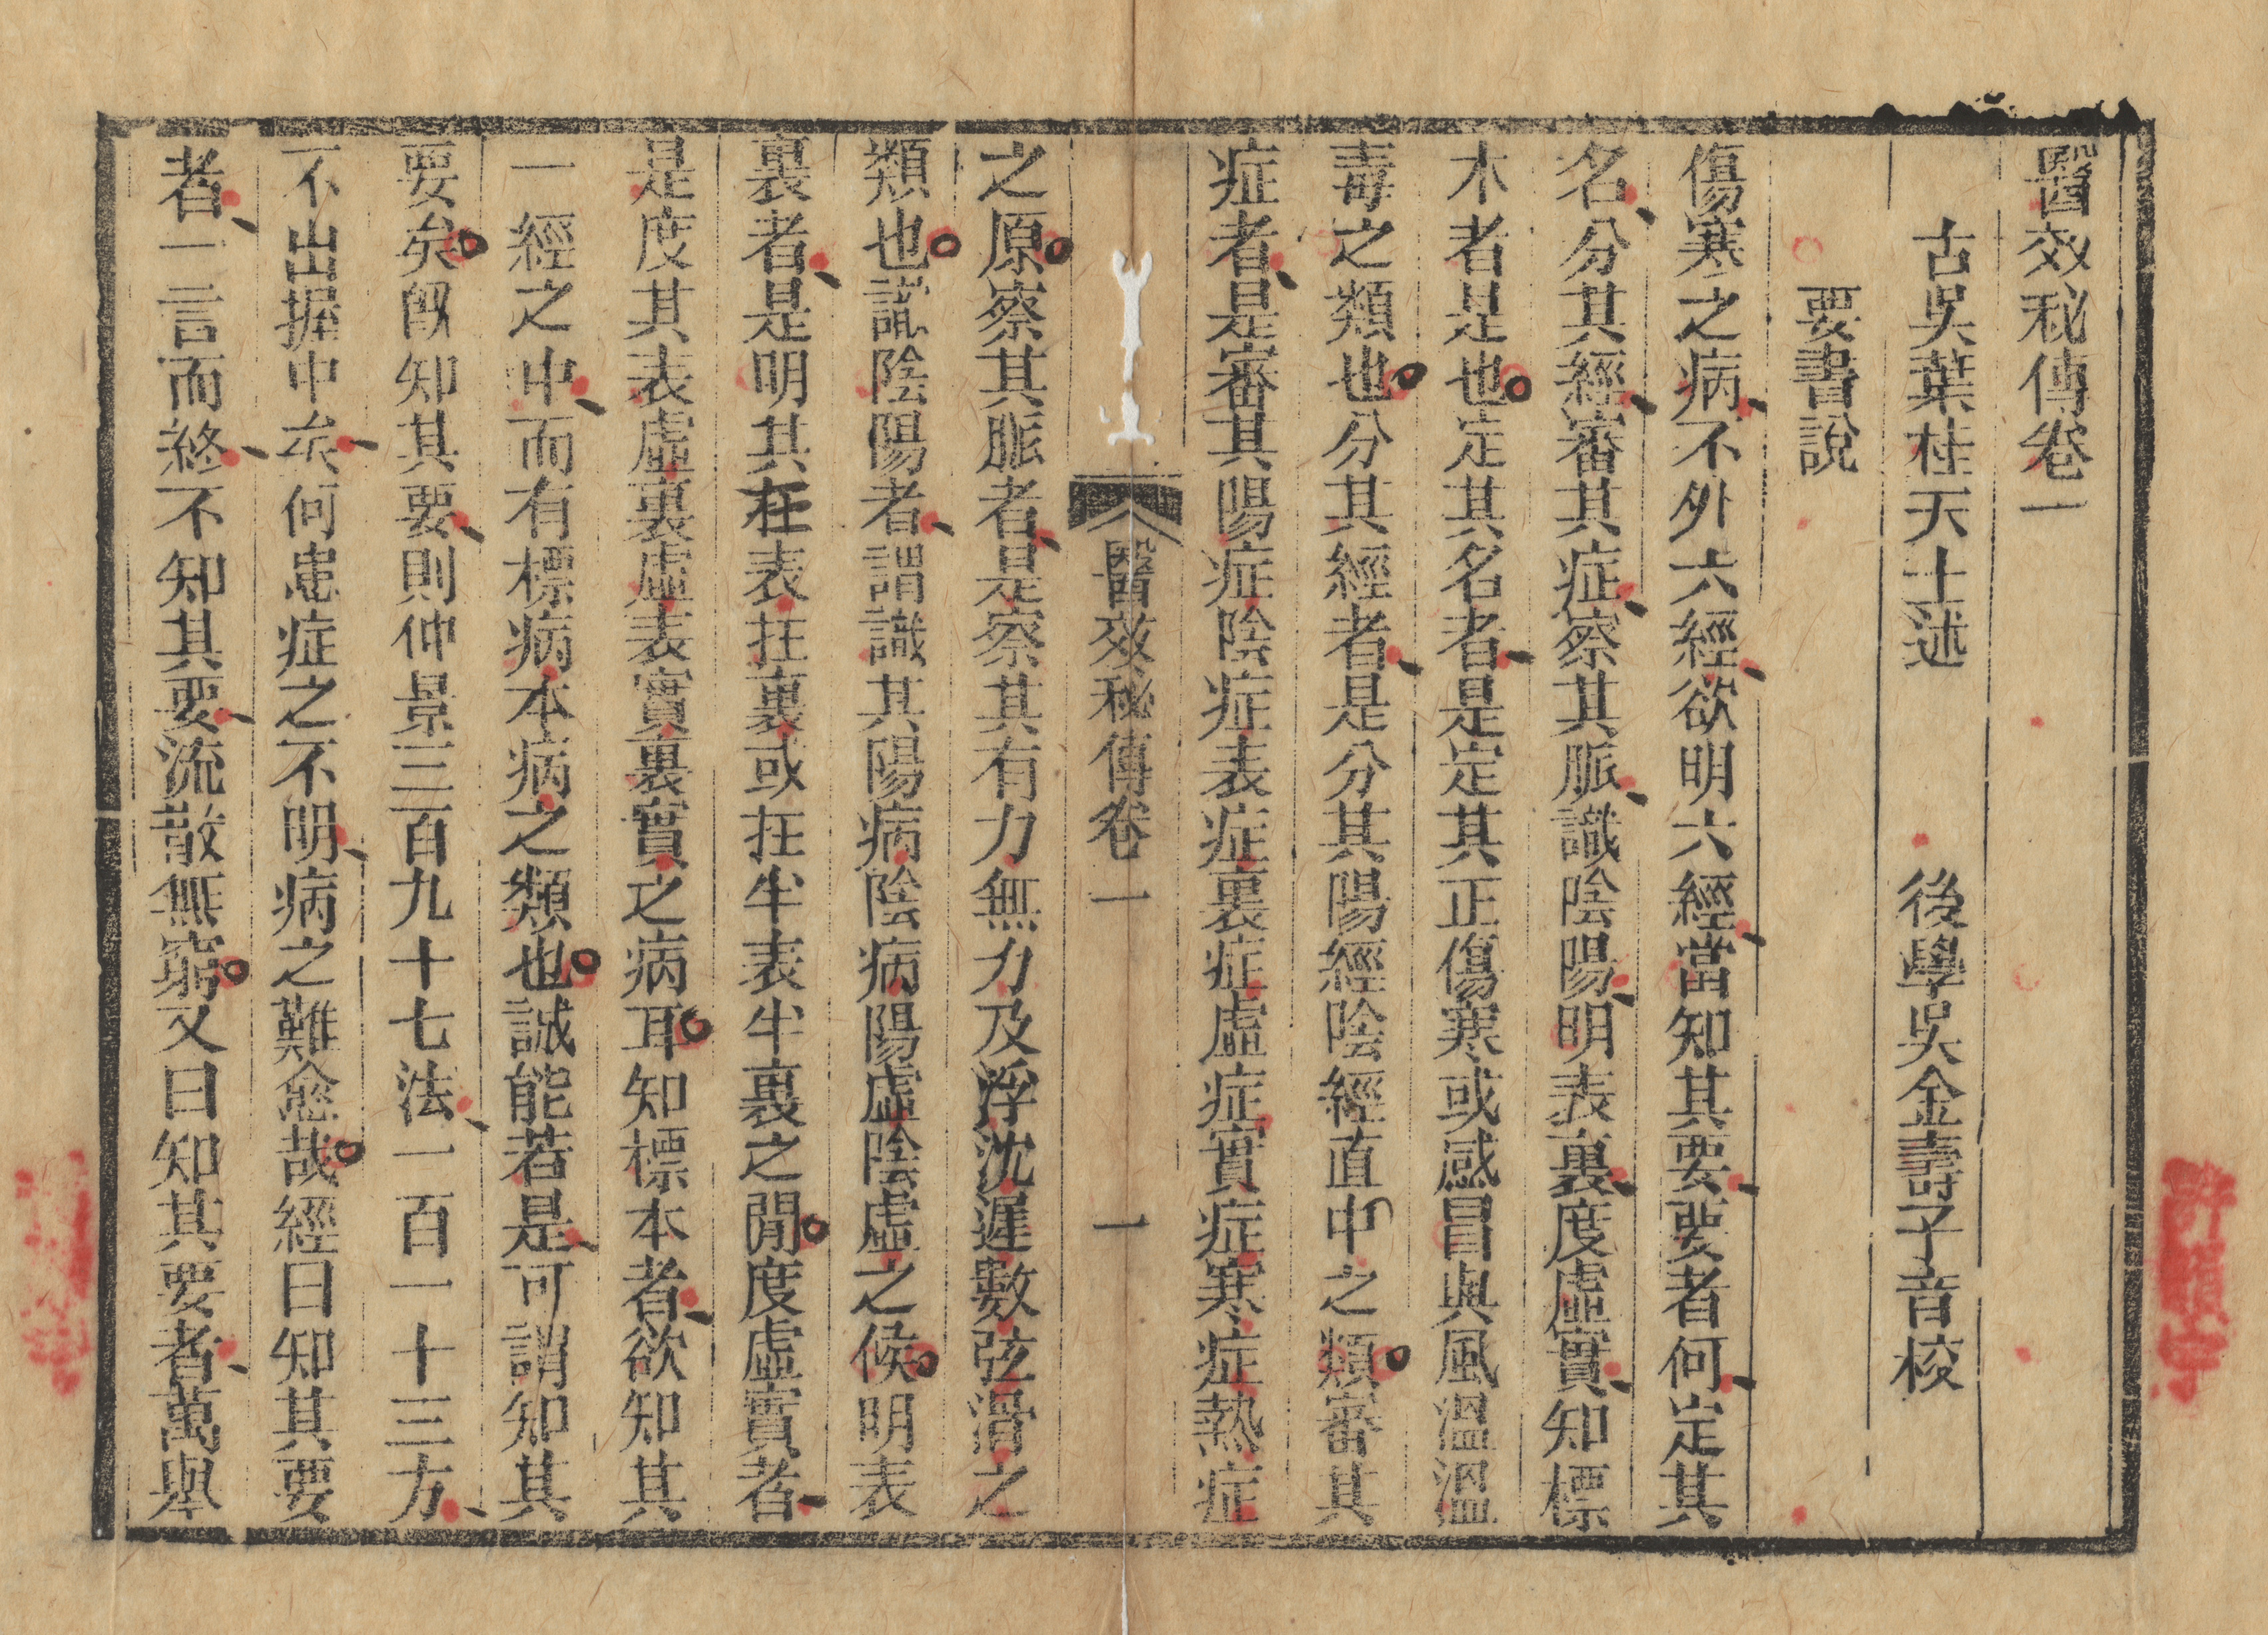 醫效秘傳卷一
古吳葉桂天士述　後學吳金壽子音校
要書說
傷寒之病不外六經欲明六經當知其要要者何定其
名分其經審其症察其脈識陰陽明表裏度虛實知標
本者是也定其名者是定其正傷寒或感冒與風溫溫
毒之類也分其經者是分其陽經陰經直中之類審其
症者是審其陽症陰症表症裏症虛症實症寒症熱症
醫效秘傳卷一　一
之原察其脈者是察其有力無力及浮沈遲數弦滑之
類也識陰陽者謂識其陽病陰病陽虛陰虛之候明表
裏者是明其在表在裏或在半表半裏之閒度虛實者
是度其表虛裏虛表實裏實之病耳知標本者欲知其
一經之中而有標病本病之類也誠能若是可謂知其
要矣旣知其要則仲景三百九十七法一百一十三方
不出握中矣何患症之不明病之難愈哉經曰知其要
者一言而終不知其要流散無窮又曰知其要者萬舉